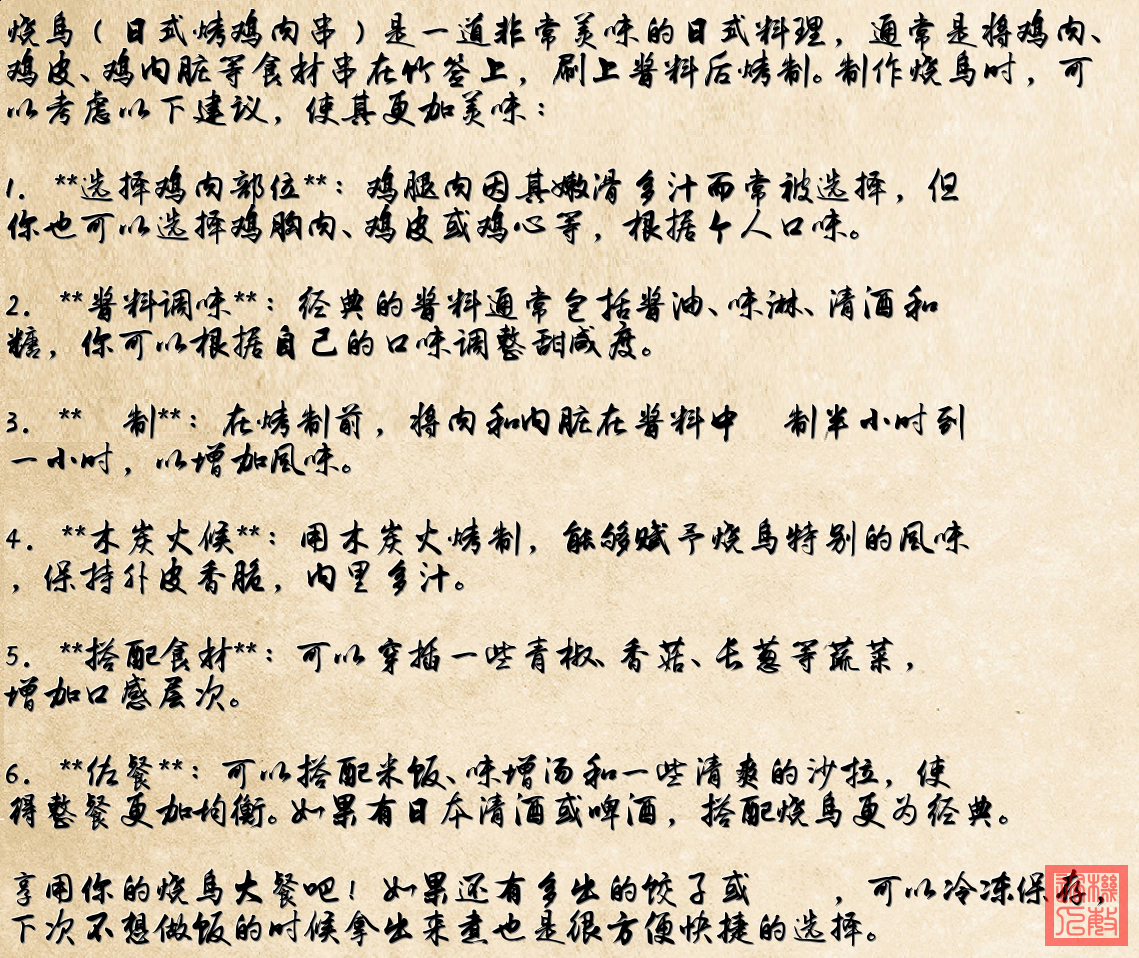 烧鸟（日式烤鸡肉串）是一道非常美味的日式料理，通常是将鸡肉、
鸡皮、鸡内脏等食材串在竹签上，刷上酱料后烤制。制作烧鸟时，可
以考虑以下建议，使其更加美味：
1. **选择鸡肉部位**：鸡腿肉因其嫩滑多汁而常被选择，但
你也可以选择鸡胸肉、鸡皮或鸡心等，根据个人口味。
2. **酱料调味**：经典的酱料通常包括酱油、味淋、清酒和
糖，你可以根据自己的口味调整甜咸度。
3. ** 制**：在烤制前，将肉和内脏在酱料中 制半小时到
一小时，以增加风味。
4. **木炭火候**：用木炭火烤制，能够赋予烧鸟特别的风味
，保持外皮香脆，内里多汁。
5. **搭配食材**：可以穿插一些青椒、香菇、长葱等蔬菜，
增加口感层次。
6. **佐餐**：可以搭配米饭、味增汤和一些清爽的沙拉，使
得整餐更加均衡。如果有日本清酒或啤酒，搭配烧鸟更为经典。
享用你的烧鸟大餐吧！如果还有多出的饺子或 ，可以冷冻保存，
下次不想做饭的时候拿出来煮也是很方便快捷的选择。